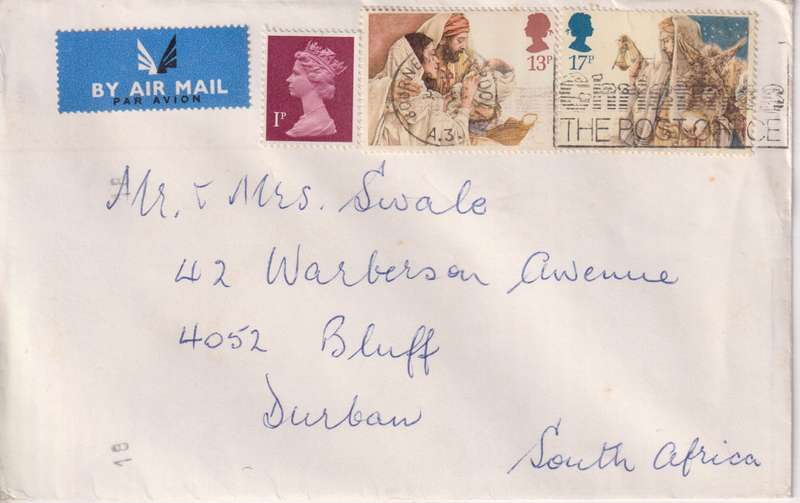 BY AIR MAIL
PAR AVION
1P
13P
17P
THE POST OFFICE
Mr. & Mrs. Swale
42 Warberson Awenue
4052 Bluff
Durban
South Africa
18